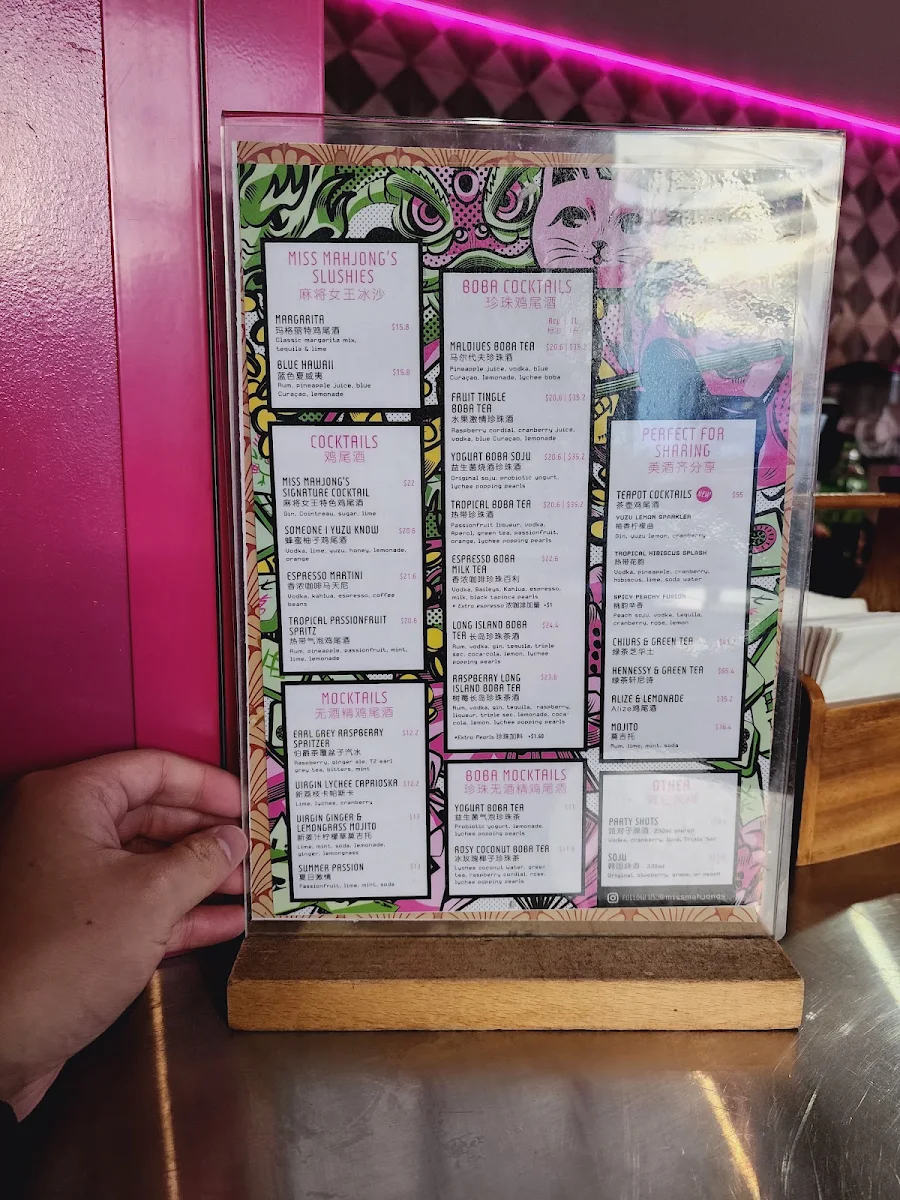 MISS MAHJONG'S
SLUSHIES
麻将女王冰沙
MARGARITA $15.8
玛格丽特鸡尾酒
Classic margarita mix,
tequila & lime
BLUE HAWAII $15.8
蓝色夏威夷
Rum, pineapple juice, blue
Curaçao, lemonade
COCKTAILS
鸡尾酒
MISS MAHJONG'S
SIGNATURE COCKTAIL $22
麻将女王特色鸡尾酒
Gin, Cointreau, sugar, lime
SOMEONE I YUZU KNOW $20.6
蜂蜜柚子鸡尾酒
Vodka, lime, yuzu, honey, lemonade,
orange
ESPRESSO MARTINI $21.6
香浓咖啡马天尼
Vodka, kahlua, espresso, coffee
beans
TROPICAL PASSIONFRUIT $20.6
SPRITZ
热带气泡鸡尾酒
Rum, pineapple, passionfruit, mint,
lime, lemonade
MOCKTAILS
无酒精鸡尾酒
EARL GREY RASPBERRY $12.2
SPRITZER
伯爵茶覆盆子汽水
Raspberry, ginger ale, T2 earl
grey tea, bitters, mint
VIRGIN LYCHEE CAPRIOSKA $12.2
新荔枝卡帕斯卡
Lime, lychee, cranberry
VIRGIN GINGER & $13
LEMONGRASS MOJITO
新姜汁柠檬草莫吉托
Lime, mint, soda, lemonade,
ginger, lemongrass
SUMMER PASSION $13
夏日激情
Passionfruit, lime, mint, soda
BOBA COCKTAILS
珍珠鸡尾酒
Reg 1L
MALDIVES BOBA TEA $20.6 | $35.2
马尔代夫珍珠酒
Pineapple juice, vodka, blue
Curaçao, lemonade, lychee boba
FRUIT TINGLE $20.6 | $35.2
BOBA TEA
水果激情珍珠酒
Raspberry cordial, cranberry juice,
vodka, blue Curaçao, lemonade
YOGURT BOBA SOJU $20.6 | $35.2
益生菌烧酒珍珠酒
Original soju, probiotic yogurt,
lychee popping pearls
TROPICAL BOBA TEA $20.6 | $35.2
热带珍珠酒
Passionfruit liqueur, vodka,
Aperol, green tea, passionfruit,
orange, lychee popping pearls
ESPRESSO BOBA $22.6
MILK TEA
香浓咖啡珍珠百利
Vodka, Baileys, Kahlua, espresso,
milk, black tapioca pearls
+ Extra espresso 浓咖添加量 +$1
LONG ISLAND BOBA $24.4
TEA 长岛珍珠茶酒
Rum, vodka, gin, tequila, triple
sec, coca-cola, lemon, lychee
popping pearls
RASPBERRY LONG $23.8
ISLAND BOBA TEA
树莓长岛珍珠茶酒
Rum, vodka, gin, tequila, raspberry
liqueur, triple sec, lemonade, coca-
cola, lemon, lychee popping pearls
+Extra Pearls 珍珠加料 +$1.60
BOBA MOCKTAILS
珍珠无酒精鸡尾酒
YOGURT BOBA TEA
益生菌气泡珍珠茶
Probiotic yogurt, lemonade,
lychee popping pearls
ROSY COCONUT BOBA TEA
冰玫瑰椰子珍珠茶
Lychee coconut water, green
tea, raspberry cordial, rose,
lychee popping pearls
PERFECT FOR
SHARING
美酒齐分享
TEAPOT COCKTAILS NEW $55
茶壶鸡尾酒
YUZU LEMON SPARKLER
柚香柠檬曲
Gin, yuzu lemon, cranberry
TROPICAL HIBISCUS SPLASH
热带花韵
Vodka, pineapple, cranberry,
hibiscus, lime, soda water
SPICY PEACHY FUSION
桃韵辛香
Peach soju, vodka, tequila,
cranberry, rose, lemon
CHIVAS & GREEN TEA
绿茶芝华士
HENNESSY & GREEN TEA $65.4
绿茶轩尼诗
ALIZE & LEMONADE $35.2
Alize鸡尾酒
MOJITO $36.4
莫吉托
Rum, lime, mint, soda
OTHER
PARTY SHOTS
Vodka, cranberry, lime, triple sec
SOJU
韩国烧酒
Original, blueberry, grape, or peach
FOLLOW US @missmahjongs